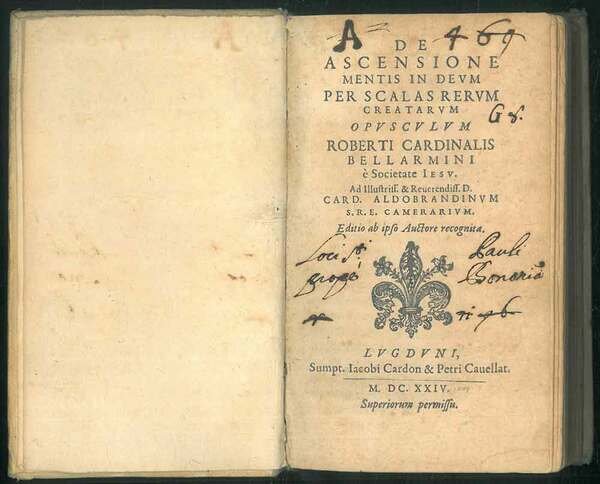 A DE 469
ASCENSIONE
MENTIS IN DEVM
PER SCALAS RERVM
CREATARVM
G 8.
OPVSCVLVM
ROBERTI CARDINALIS
BELLARMINI
è Societate IESV.
Ad Illustriss. & Reuerendiss. D.
CARD. ALDOBRANDINVM
S. R. E. CAMERARIVM.
Editio ab ipso Auctore recognita.
Loci Sti Pauli
Bononia
LVGDVNI,
Sumpt. Iacobi Cardon & Petri Cauellat.
M. DC. XXIV.
Superiorum permissu.